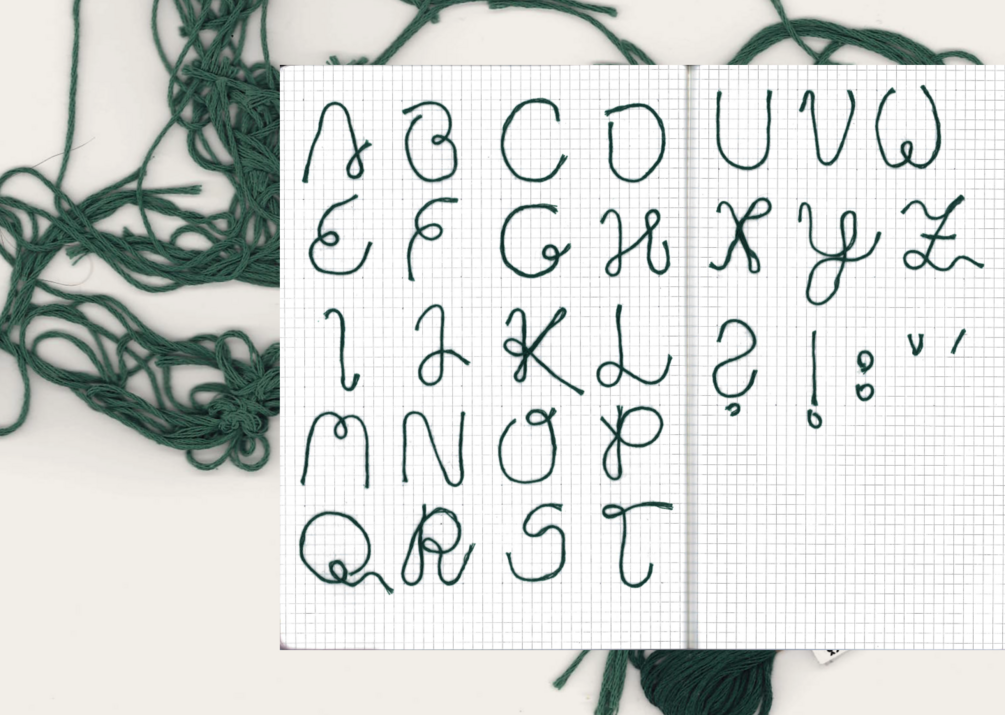 A B C D
E F G H
I J K L
M N O P
Q R S T
U V W
X Y Z
? ! : " '